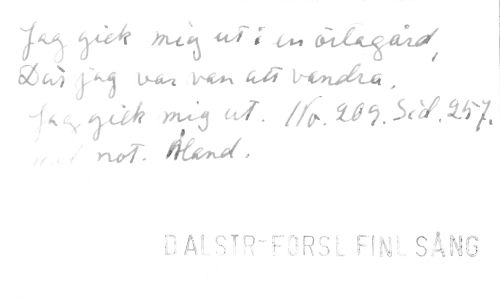 Jag gick mig ut i en örtagård,
Där jag var van att vandra.
Jag gick mig ut. No. 209. Sid. 257.
med not. Åland.
DALSTR-FORSL FINL SÅNG